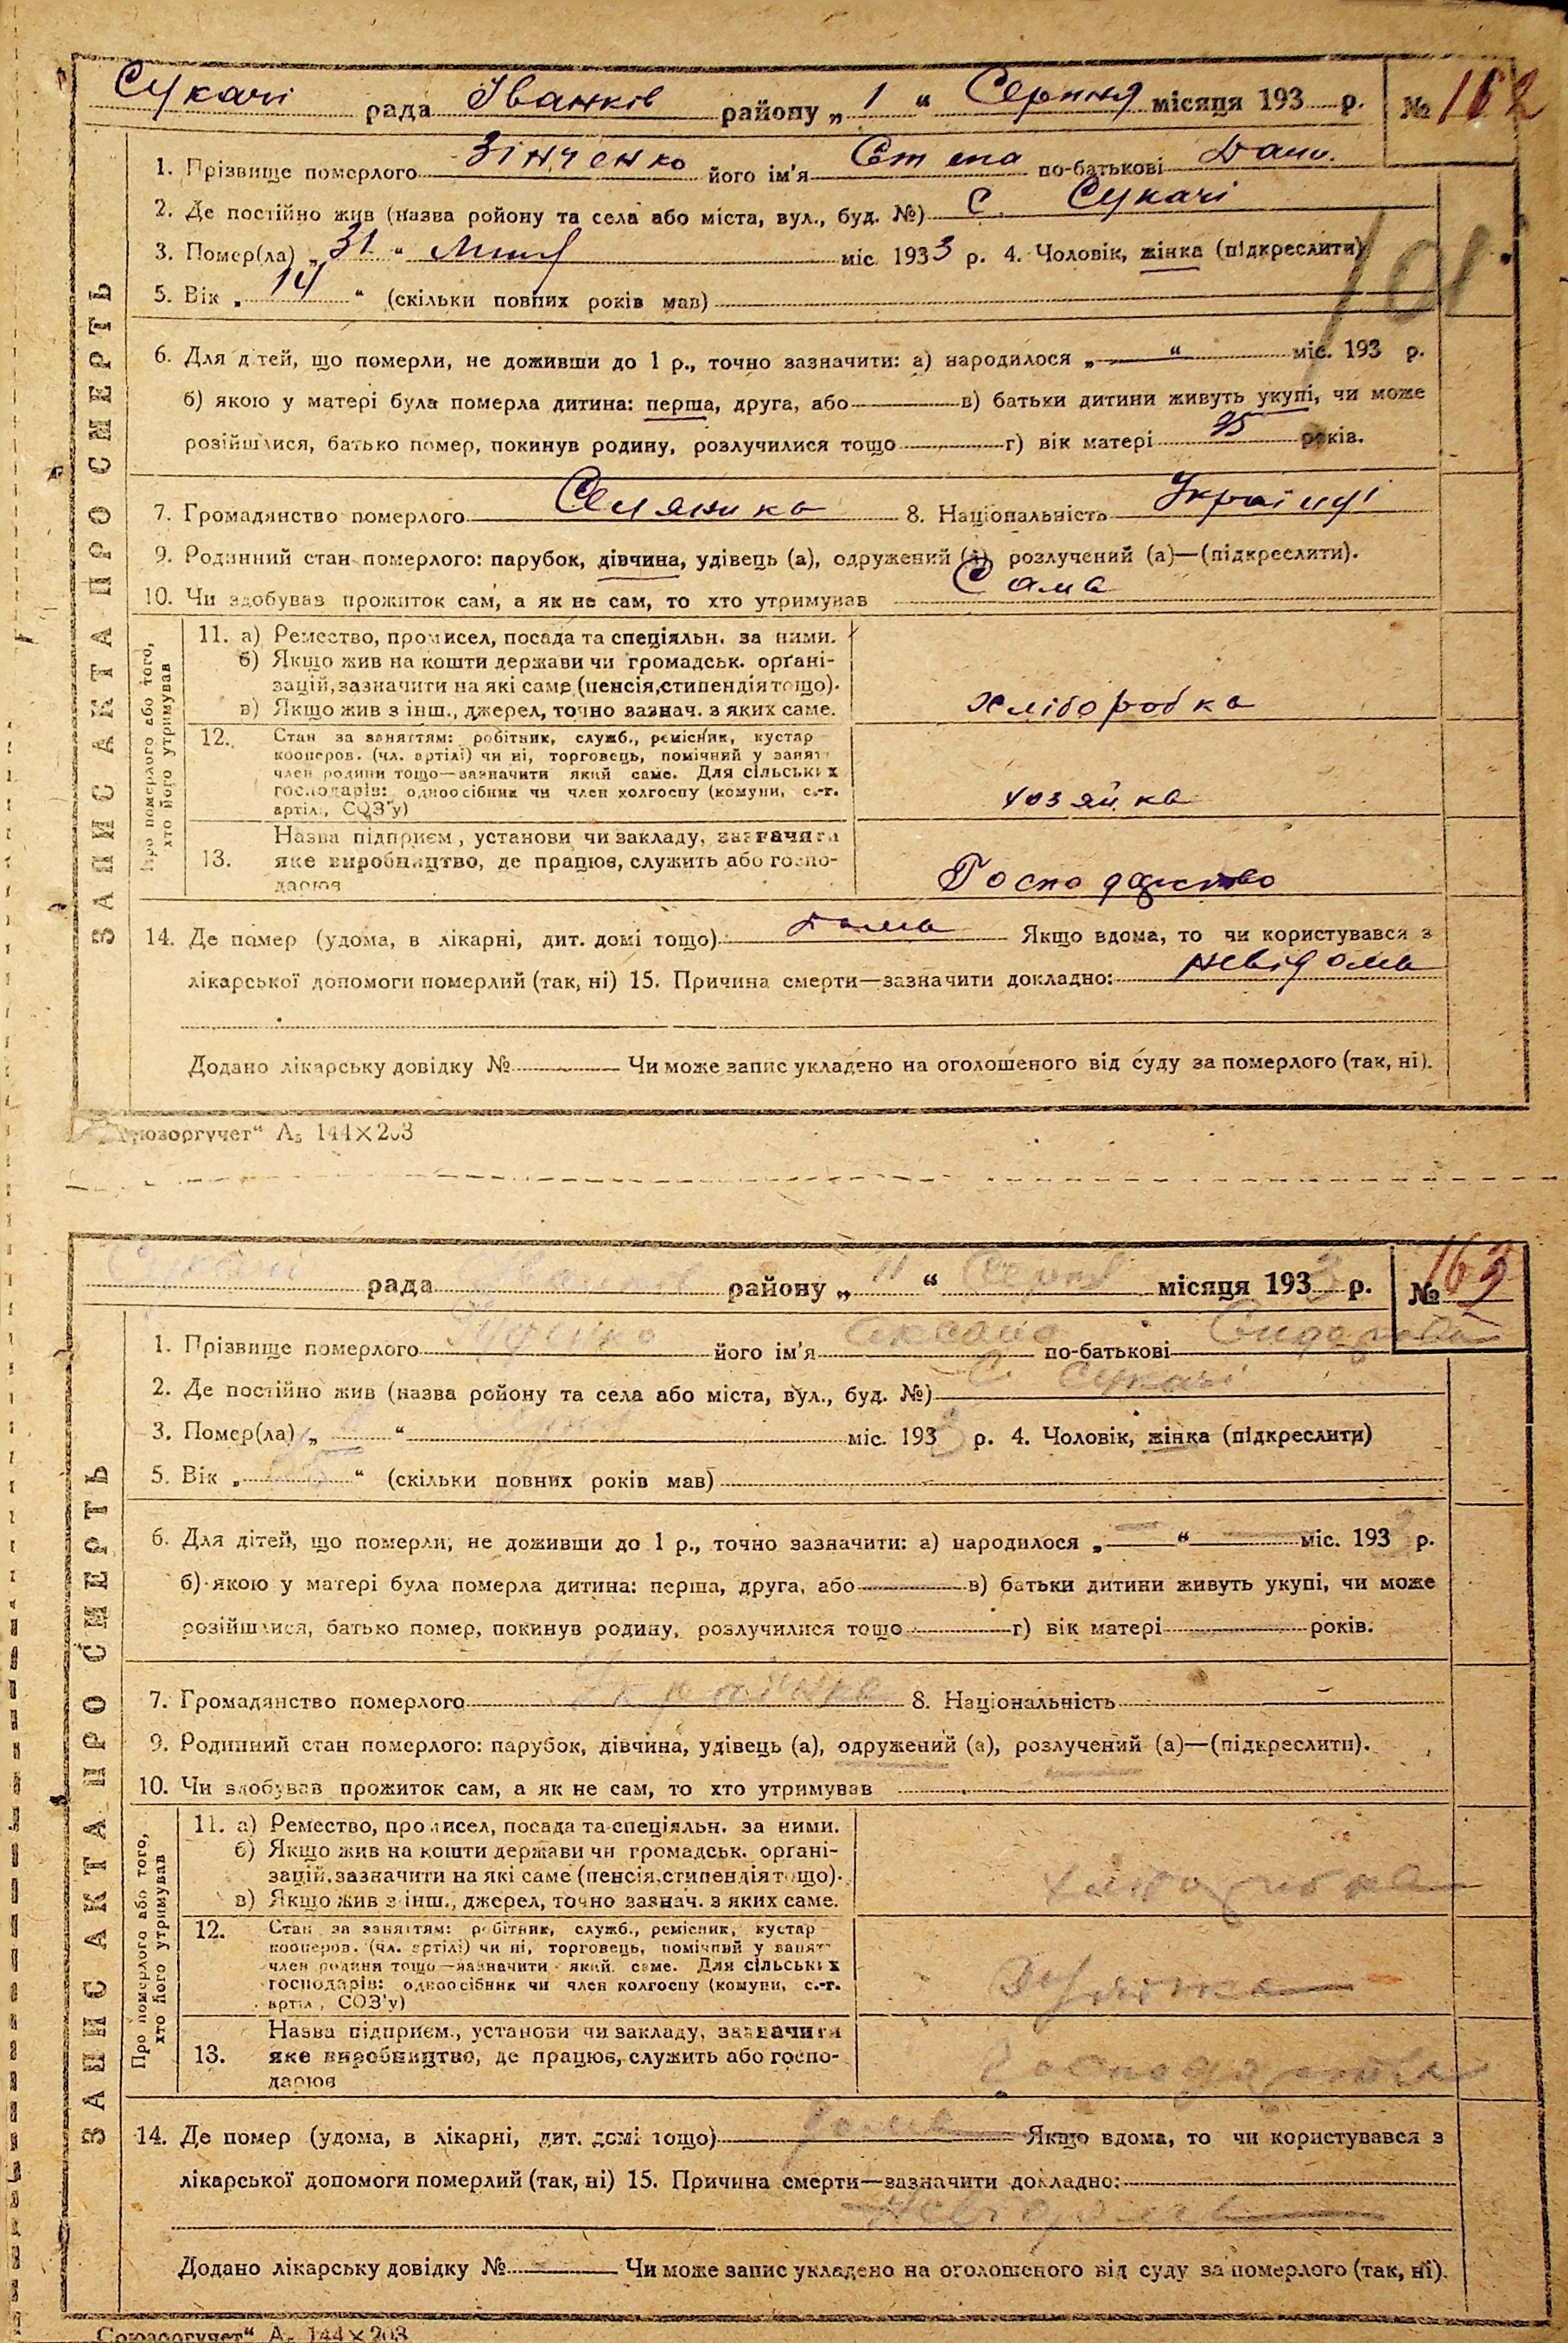 Сукачі рада Іванків району „ 1 “ Серпня місяця 193 р. № 162
1. Прізвище померлого Зінченко його ім'я по-батькові Дани.
2. Де постійно жив (назва ройону та села або міста, вул., буд. №) с. Сукачі
3. Помер(ла) „ 31 “ міс. 1933 р. 4. Чоловік, жінка (підкреслити)
5. Вік „ 14 “ (скільки повних років мав)
101
6. Для дітей, що померли, не доживши до 1 р., точно зазначити: а) народилося „ — “ міс. 193 р.
б) якою у матері була померла дитина: перша, друга, або — в) батьки дитини живуть укупі, чи може
розійшлися, батько помер, покинув родину, розлучилися тощо г) вік матері років.
7. Громадянство померлого Селяника 8. Національність Українці
9. Родинний стан померлого: парубок, дівчина, удівець (а), одружений (а), розлучений (а)—(підкреслити).
10. Чи здобував прожиток сам, а як не сам, то хто утримував Сама
ЗАПИС АКТА ПРО СМЕРТЬ
Про померлого або того, хто його утримував
11. а) Ремество, промисел, посада та спеціяльн. за ними.
б) Якщо жив на кошти держави чи громадськ. орґані-
зацій, зазначити на які саме (пенсія, стипендія тощо).
в) Якщо жив з інш., джерел, точно зазнач. з яких саме.
хліборобка
12. Стан за заняттям: робітник, служб., ремісник, кустар
кооперов. (чл. артілі) чи ні, торговець, помічний у занят
член родини тощо—зазначити який саме. Для сільських
господарів: одноосібник чи член колгоспу (комуни, с.-г.
артіл., СОЗ'у)
хозяйка
Назва підприєм., установи чи закладу, зазначити
13. яке виробництво, де працює, служить або госпо-
дарює
Господарство
14. Де помер (удома, в лікарні, дит. домі тощо) дома Якщо вдома, то чи користувався з
лікарської допомоги померлий (так, ні) 15. Причина смерти—зазначити докладно: невідома
Додано лікарську довідку № — Чи може запис укладено на оголошеного від суду за померлого (так, ні).
„Союзоргучет“ А₅ 144×203
Сукачі рада Іванків району „ 11 “ Серпня місяця 1933 р. № 163
1. Прізвище померлого його ім'я по-батькові
2. Де постійно жив (назва ройону та села або міста, вул., буд. №) С. Сукачі
3. Помер(ла) „ “ міс. 1933 р. 4. Чоловік, жінка (підкреслити)
5. Вік „ “ (скільки повних років мав)
6. Для дітей, що померли, не доживши до 1 р., точно зазначити: а) народилося „ — “ — міс. 193 р.
б) якою у матері була померла дитина: перша, друга, або — в) батьки дитини живуть укупі, чи може
розійшлися, батько помер, покинув родину, розлучилися тощо г) вік матері років.
7. Громадянство померлого Українка 8. Національність
9. Родинний стан померлого: парубок, дівчина, удівець (а), одружений (а), розлучений (а)—(підкреслити).
10. Чи здобував прожиток сам, а як не сам, то хто утримував
ЗАПИС АКТА ПРО СМЕРТЬ
Про померлого або того, хто його утримував
11. а) Ремество, промисел, посада та спеціяльн. за ними.
б) Якщо жив на кошти держави чи громадськ. орґані-
зацій, зазначити на які саме (пенсія, стипендія тощо).
в) Якщо жив з інш., джерел, точно зазнач. з яких саме.
12. Стан за заняттям: робітник, служб., ремісник, кустар
кооперов. (чл. артілі) чи ні, торговець, помічний у занят
член родини тощо—зазначити який саме. Для сільських
господарів: одноосібник чи член колгоспу (комуни, с.-г.
артіл., СОЗ'у)
Назва підприєм., установи чи закладу, зазначити
13. яке виробництво, де працює, служить або госпо-
дарює
14. Де помер (удома, в лікарні, дит. домі тощо) дома Якщо вдома, то чи користувався з
лікарської допомоги померлий (так, ні) 15. Причина смерти—зазначити докладно:
Невідома
Додано лікарську довідку № — Чи може запис укладено на оголошеного від суду за померлого (так, ні).
Союзоргучет“ А₅ 144×203